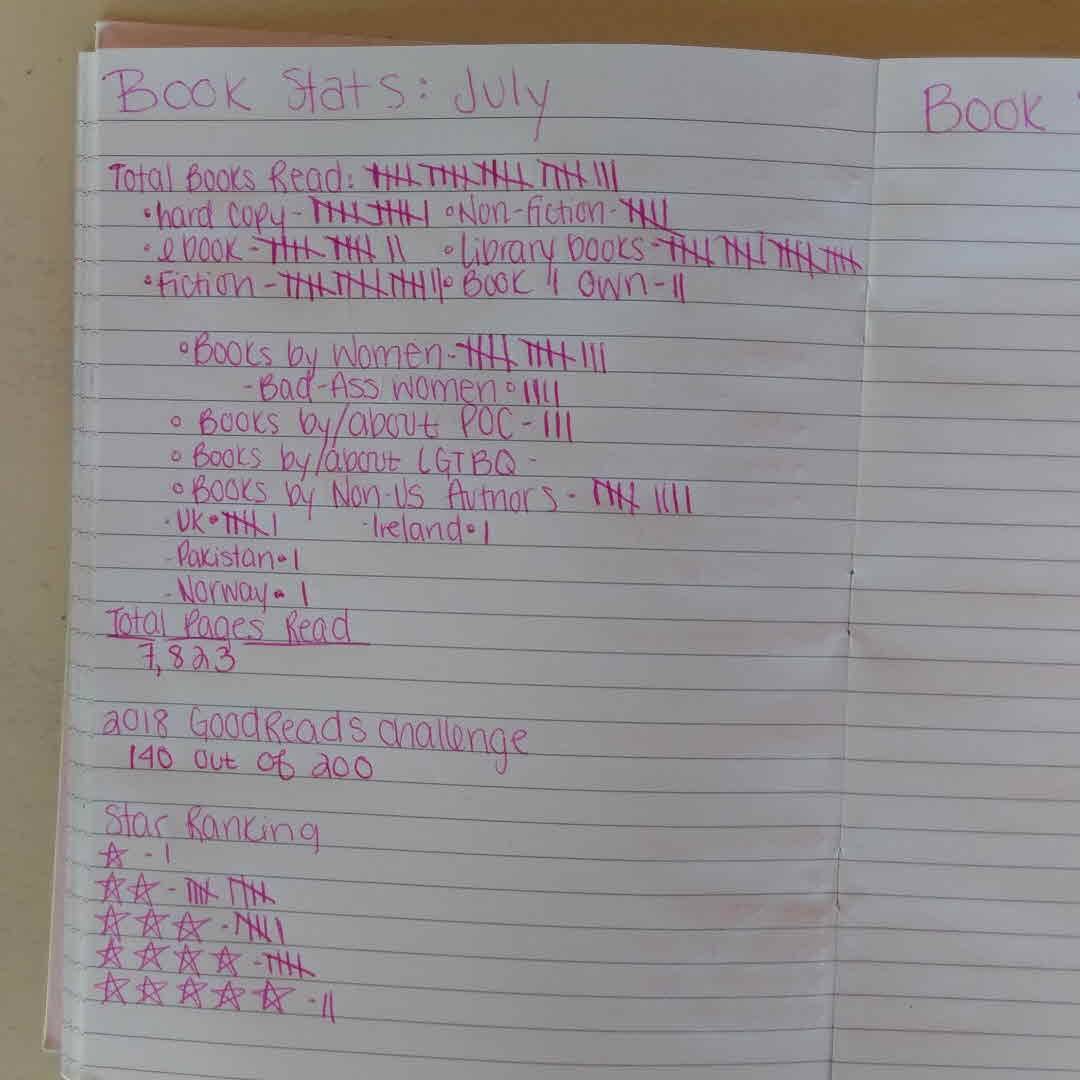 Book Stats: July
Book
Total Books Read: 卌 卌 卌 卌 |||
•hard copy - 卌 卌 | •Non-fiction - 卌 |
•ebook - 卌 卌 || •Library books - 卌 卌 | 卌 卌
•fiction - 卌 卌 卌 || •Book I own - ||
•Books by Women - 卌 卌 |||
-Bad-Ass women • ||||
• Books by/about POC - |||
• Books by/about LGTBQ -
• Books by Non-US Authors - 卌 ||||
- UK • 卌 | -Ireland • |
-Pakistan • |
-Norway • |
Total Pages Read
7,823
2018 GoodReads Challenge
140 out of 200
Star Ranking
☆ - |
☆☆ - 卌 卌
☆☆☆ - 卌
☆☆☆☆ - 卌
☆☆☆☆☆ - ||